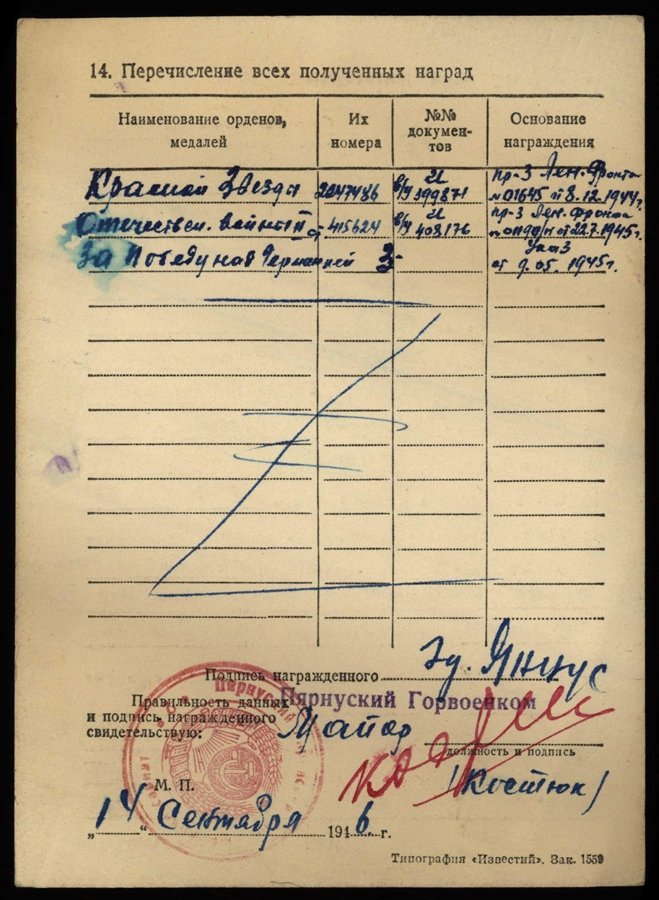 14. Перечисление всех полученных наград
Наименование орденов, медалей
Их номера
№№ документов
Основание награждения
Красной Звезда 2247486 399871 пр-з Лен. Фронта
№ 01645 от 8.12.1944г.
Отечествен. войны II ст 415624 408176 пр-з Лен. фронта
от 22.7.1945г.
За Победу над Германией З- Указ
от 9.05.1945г.
Подпись награжденного Эд. Янцус
Правильность данных
и подпись награжденного
свидетельствую:
Пярнуский Горвоенком
Майор
должность и подпись
(Костюк)
М. П.
„14“ Сентября 1946 г.
Типография «Известий». Зак. 1559